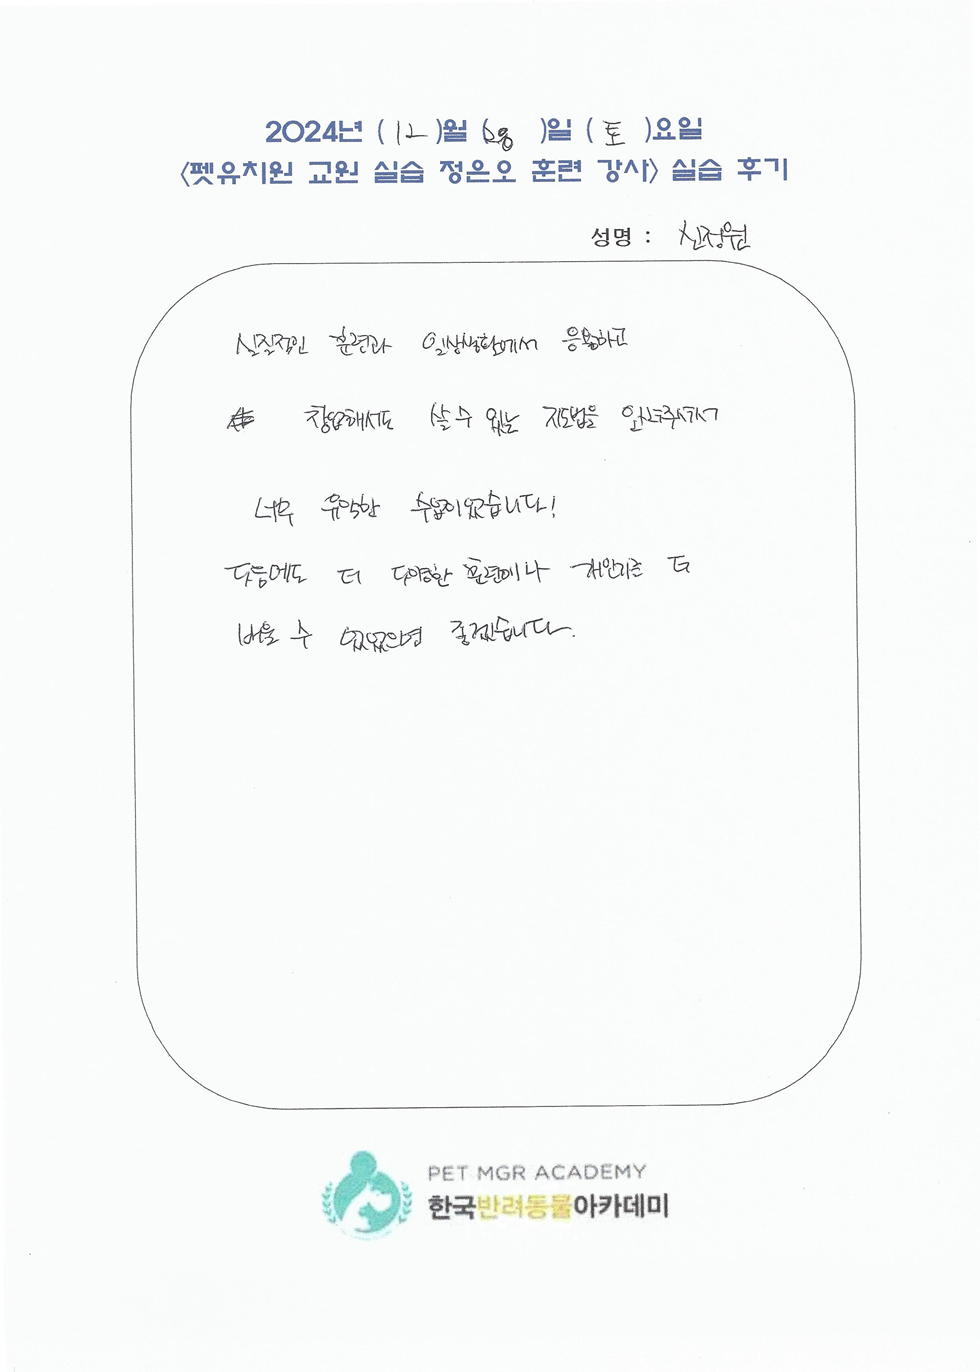 2024년 (12)월 (28)일 (토)요일
<펫유치원 교원 실습 정은오 훈련 강사> 실습 후기
성명 : 신정원
실질적인 훈련과 일상생활에서 응용하고
창업해서도 쓸 수 있는 지도법을 알려주셔서
너무 유익한 수업이었습니다!
다음에도 더 다양한 훈련에나 더
배울 수 있었으면 좋겠습니다.
PET MGR ACADEMY
한국반려동물아카데미